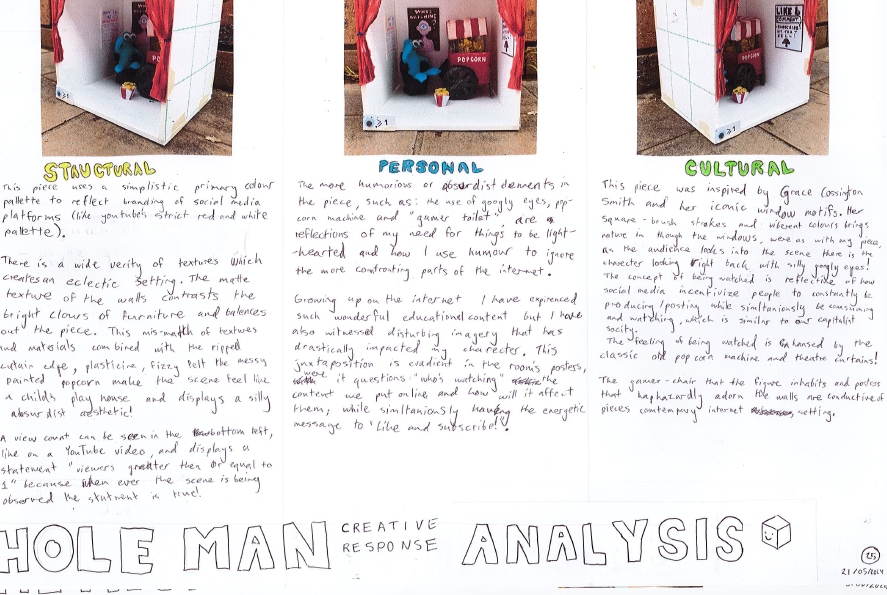 WHO'S WATCHING
POPCORN
≥1
WHO'S WATCHING
POPCORN
≥1
LIKE &
COMMENT
POPCORN
≥1
STRUCTURAL
This piece uses a simplistic primary colour
palette to reflect branding of social media
platforms (like youtube's strict red and white
palette).
There is a wide verity of textures which
creates an eclectic setting. The matte
texture of the walls contrasts the
bright clours of furniture and balences
out the piece. This mis-match of textures
and mateials combined with the ripped
curtain edge, plasticine, fizzy felt the messy
painted popcorn make the scene feel like
a child's play house and displays a silly
absurdist aesthetic!
A view count can be seen in the bottom left,
like on a YouTube video, and displays a
statement "viewers greater then or equal to
1" because when ever the scene is being
observed the statment is true!
PERSONAL
The more humorious or absurdist elements in
the piece, such as: the use of googly eyes, pop-
corn machine and "gamer toilet" are
reflections of my need for things to be light-
-hearted and how I use humour to ignore
the more confronting parts of the internet.
Growing up on the internet I have expirenced
such wonderful educational content but I have
also witnessed disturbing imagery that has
drastically impacted my charecter. This
juxtaposition is evadint in the room's posters,
were it questions "who's watching" the
content we put online and how will it affect
them; while simltaniously having the energetic
message to "Like and subscribe!".
CULTURAL
This piece was inspired by Grace Cossington
Smith and her iconic window motifs. Her
square-brush strokes and viberent colours brings
nature in though the windows, were as with my piece,
as the audience looks into the scene there is the
charecter looking right back with silly googly eyes!
The concept of being watched is reflective of how
social media incentivize people to constantly be
producing/posting while simultaniously be consuming
and watching, which is similar to our capitalist
socity.
The feeling of being watched is enhansed by the
classic old popcorn machine and theatre curtains!
The gamer-chair that the figure inhabits and posters
that haphazardly adorn the walls are conductive of
pieces comtempory internet setting.
HOLE MAN CREATIVE RESPONSE ANALYSIS
25
21/05/2024